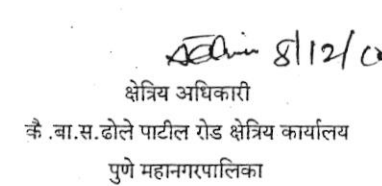 8/12/0
क्षेत्रिय अधिकारी
कै .बा.स.ढोले पाटील रोड क्षेत्रिय कार्यालय
पुणे महानगरपालिका